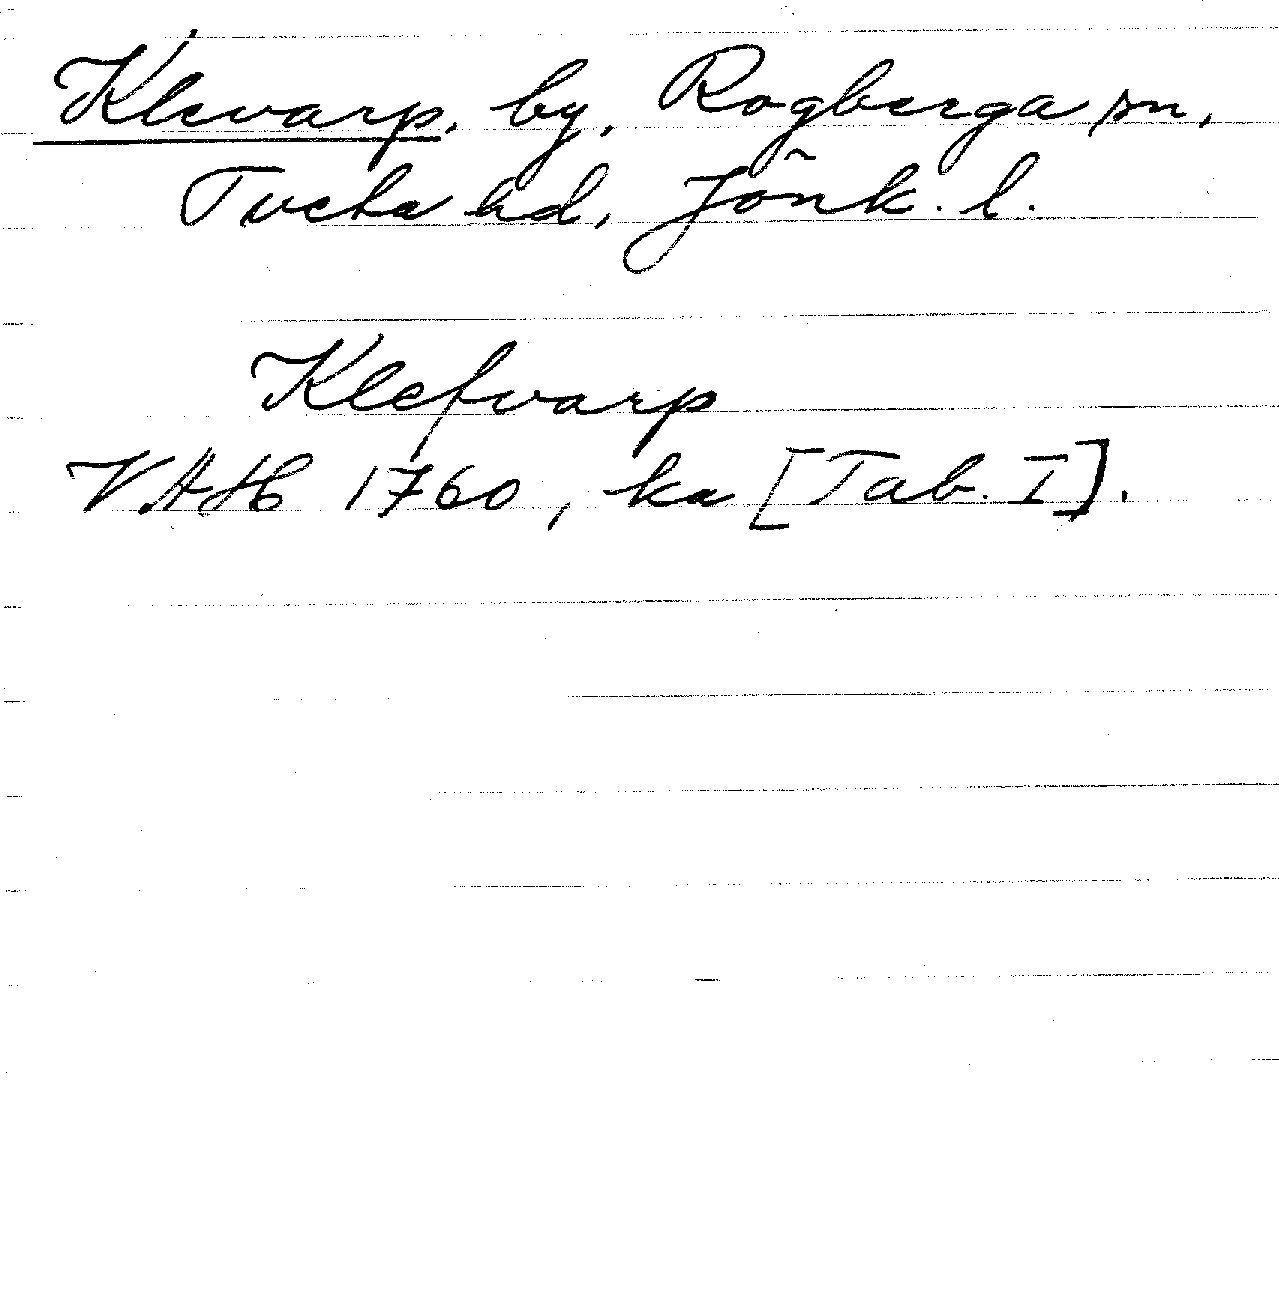 Klevarp, by, Rogberga sn,
Tveta hd, Jönk. l.
Klefvarp
VAH 1760, ka [Tab. I].